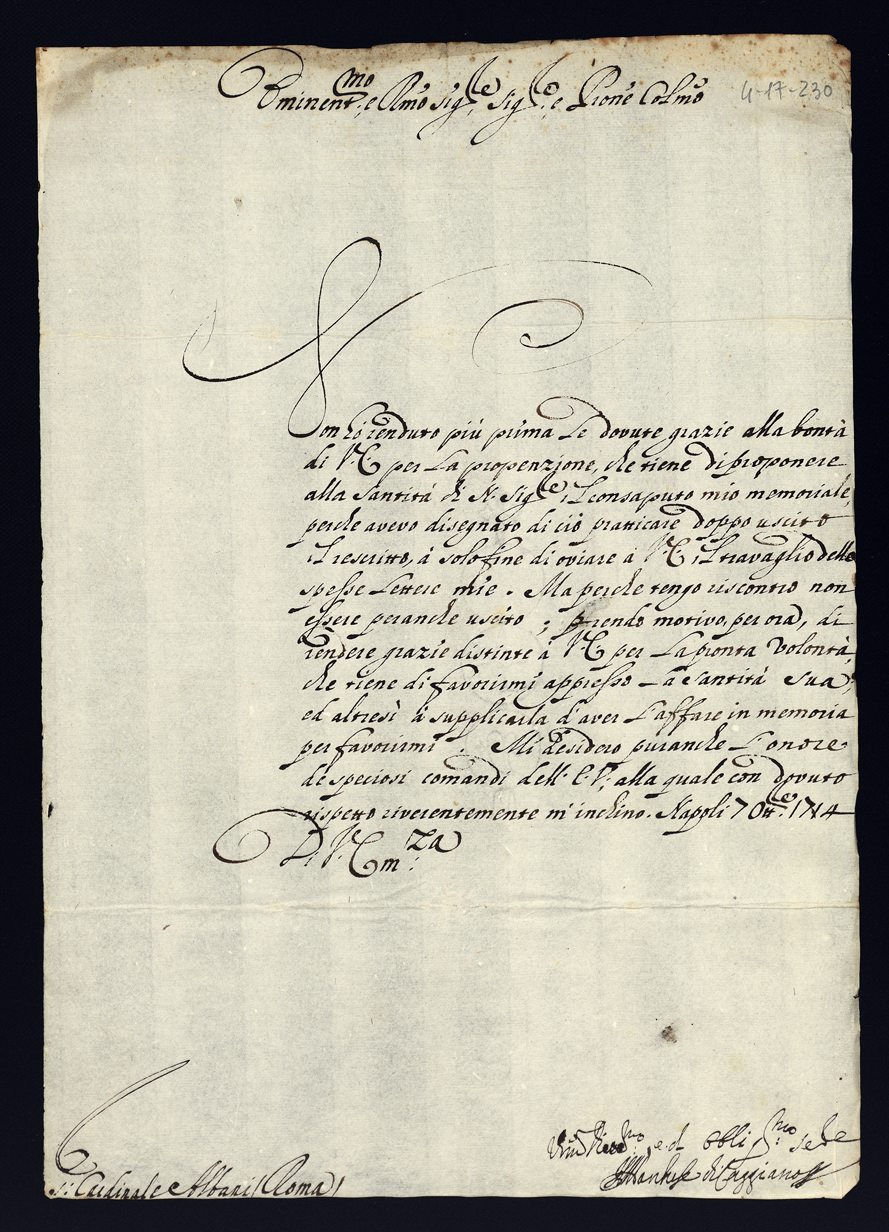 Eminent:mo e Rmo Sig:re Sig:re e Prone Colmo 4-17-230
Non hò renduto più prima le dovute grazie alla bontà
di V.E. per la propenzione, che tiene di proponere
alla Santità di N. Sig:re, il consaputo mio memoriale,
perche avevo disegnato di ciò pratticare doppo uscito
il rescritto, à solo fine di oviare à V.E. il travaglio delle
spesse lettere mie. Ma perche tengo riscontro non
essere peranche uscito; prendo motivo, per ora, di
rendere grazie distinte à V.E. per la pronta volontà,
che tiene di favorirmi appresso la Santità sua,
ed altresì à supplicarla d'aver l'affare in memoria
per favorirmi. Mi desidero puranche l'onore
de speciosi comandi dell' E.V., alla quale con dovuto
rispetto riverentemente m'inchino. Napoli 7 Ott:e 1714
D. V. Em:za
ed obli:mo
S: Cardinale Albani (Roma) di Caggiano